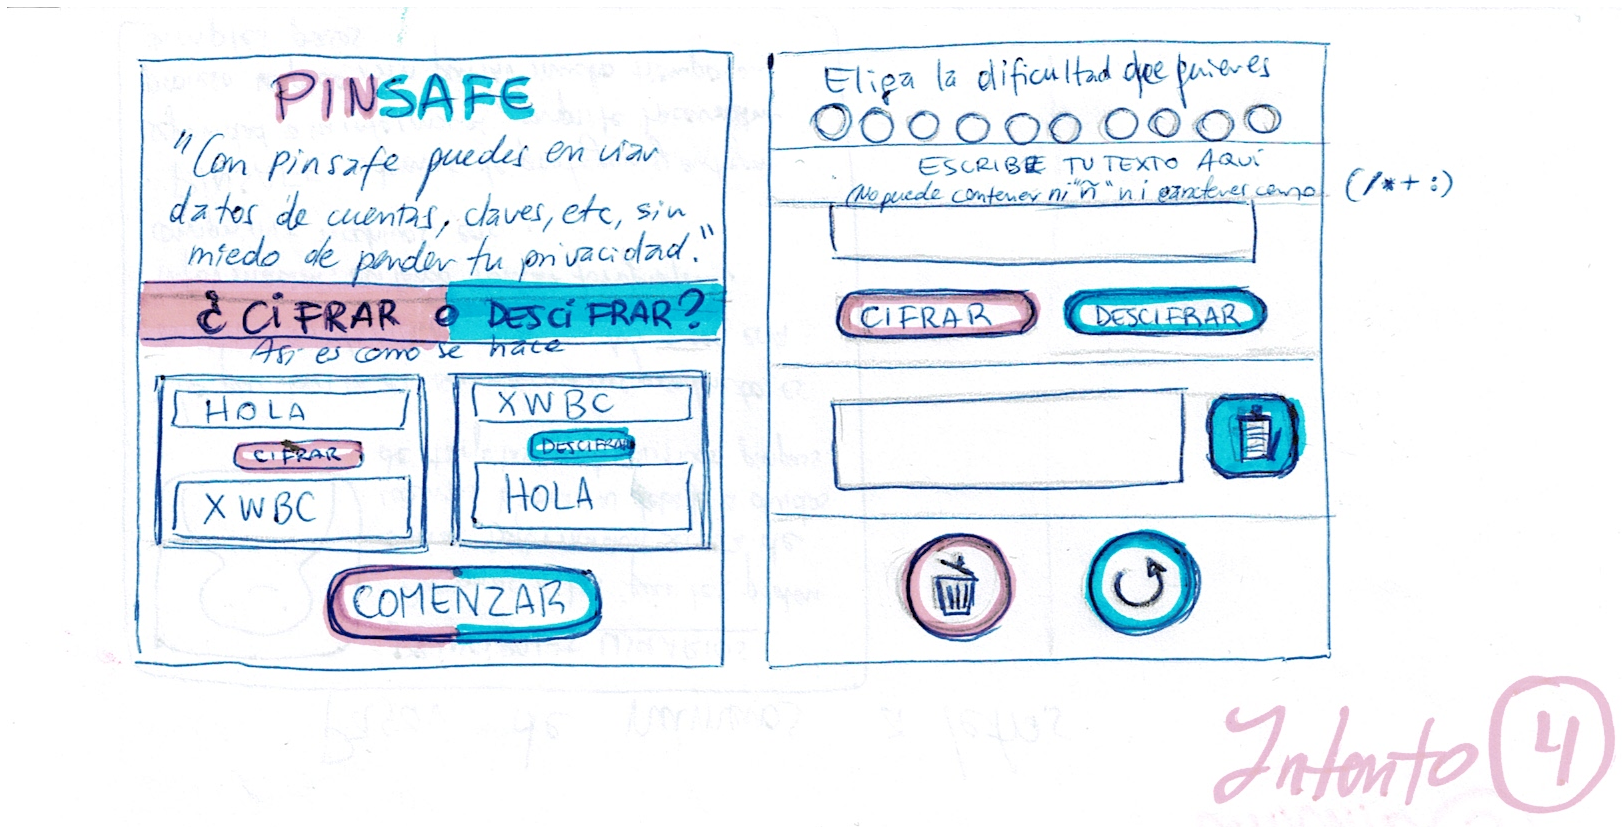 PINSAFE
"Con pinsafe puedes enviar
datos de cuentas, claves, etc, sin
miedo de perder tu privacidad."
¿CIFRAR o DESCIFRAR?
Asi es como se hace
HOLA
CIFRAR
XWBC
XWBC
DESCIFRAR
HOLA
COMENZAR
Eliga la dificultad que quieres
ESCRIBE TU TEXTO AQUÍ
(No puede contener ni "ñ" ni caracteres como (/*+:)
CIFRAR
DESCIFRAR
Intento 4